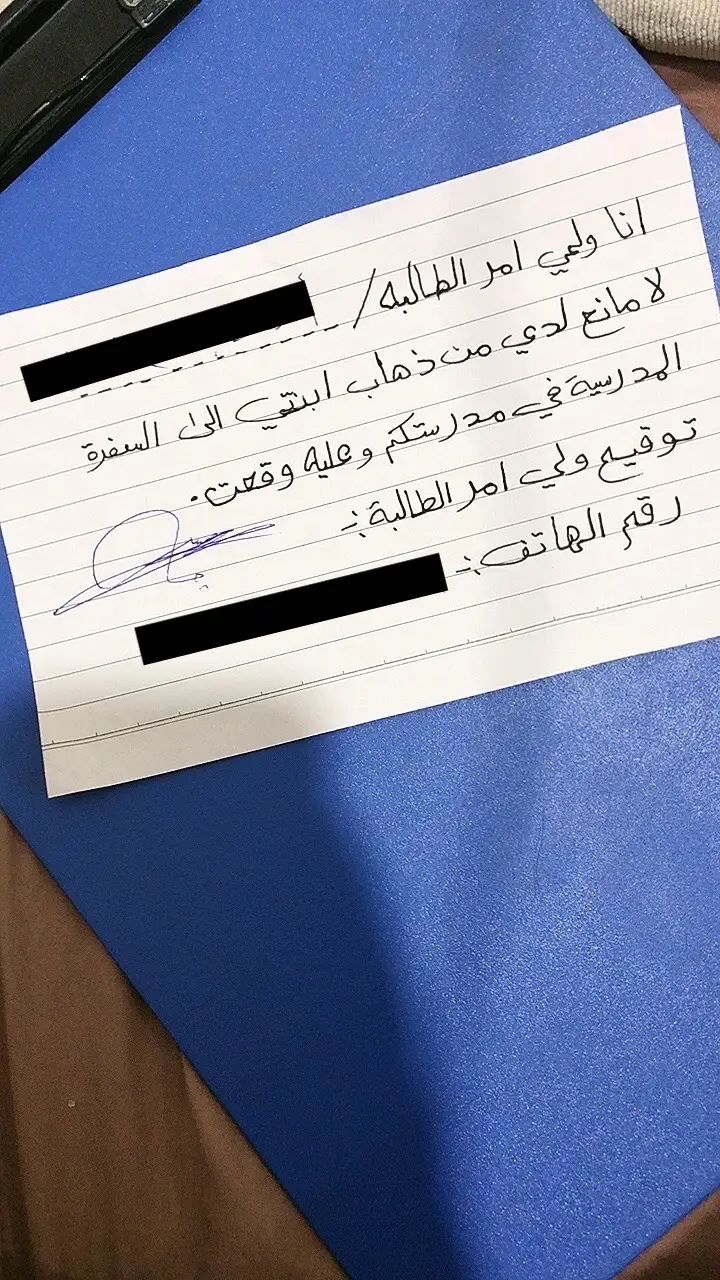 انا ولي امر الطالبه /
لا مانع لدي من ذهاب ابنتي الى السفرة
المدرسية في مدرستكم وعليه وقعت.
توقيع ولي امر الطالبة :-
رقم الهاتف :-